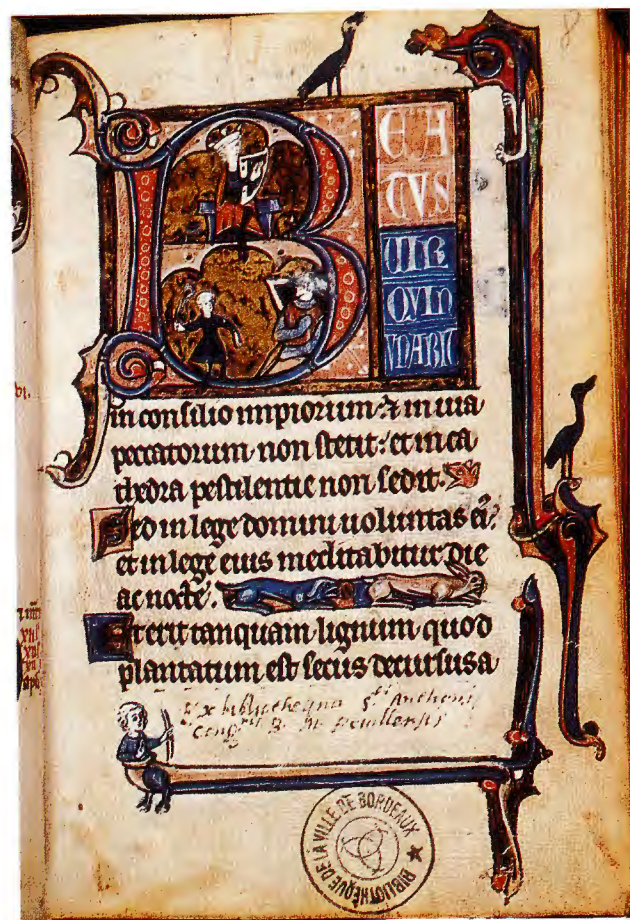 8
B EA
TVS
UIR
QUIN
NABIIT
in consilio impiorum & in uia
peccatorum non stetit: et in ca
thedra pestilentie non sedit.
Sed in lege domini uoluntas ei
et in lege eius meditabitur die
ac nocte.
Et erit tanquam lignum quod
plantatum est secus decursus a
Ex bibliotheqna Sti Anthoni
BIBLIOTHÈQUE DE LA VILLE DE BORDEAUX
vi.